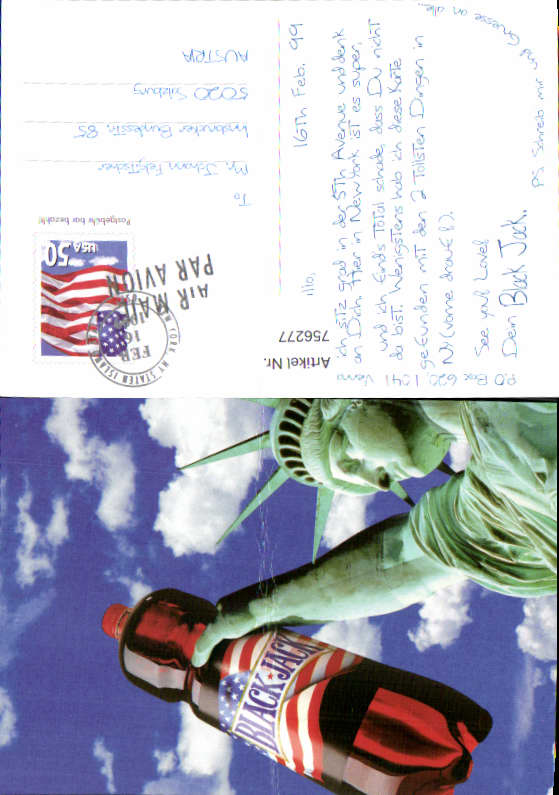 16Th Feb. 99
illo,
ich siTz grad in der 5Th Avenue und denk
an Dich. Hier in New York ist es super,
und ich find's ToTal schade, dass Du nichT
da bist. WenigsTens hab ich diese Karte
gefunden miT den 2 TollsTen Dingen in
NY (vorne drauf!).
See you! Love!
Dein Black Jack.
PS Schreib mir
P.O. Box 620, 1041 Vienna
und Gruesse an alle...
Artikel Nr.
756277
USA 50
AIR MAIL
PAR AVION
NEW YORK NY STATEN ISLAND
FEB
16
Postgebühr bar bezahlt
To
Mr. Johann
Innsbrucker Bundesstr. 85
5020 Salzburg
AUSTRIA
BLACK JACK